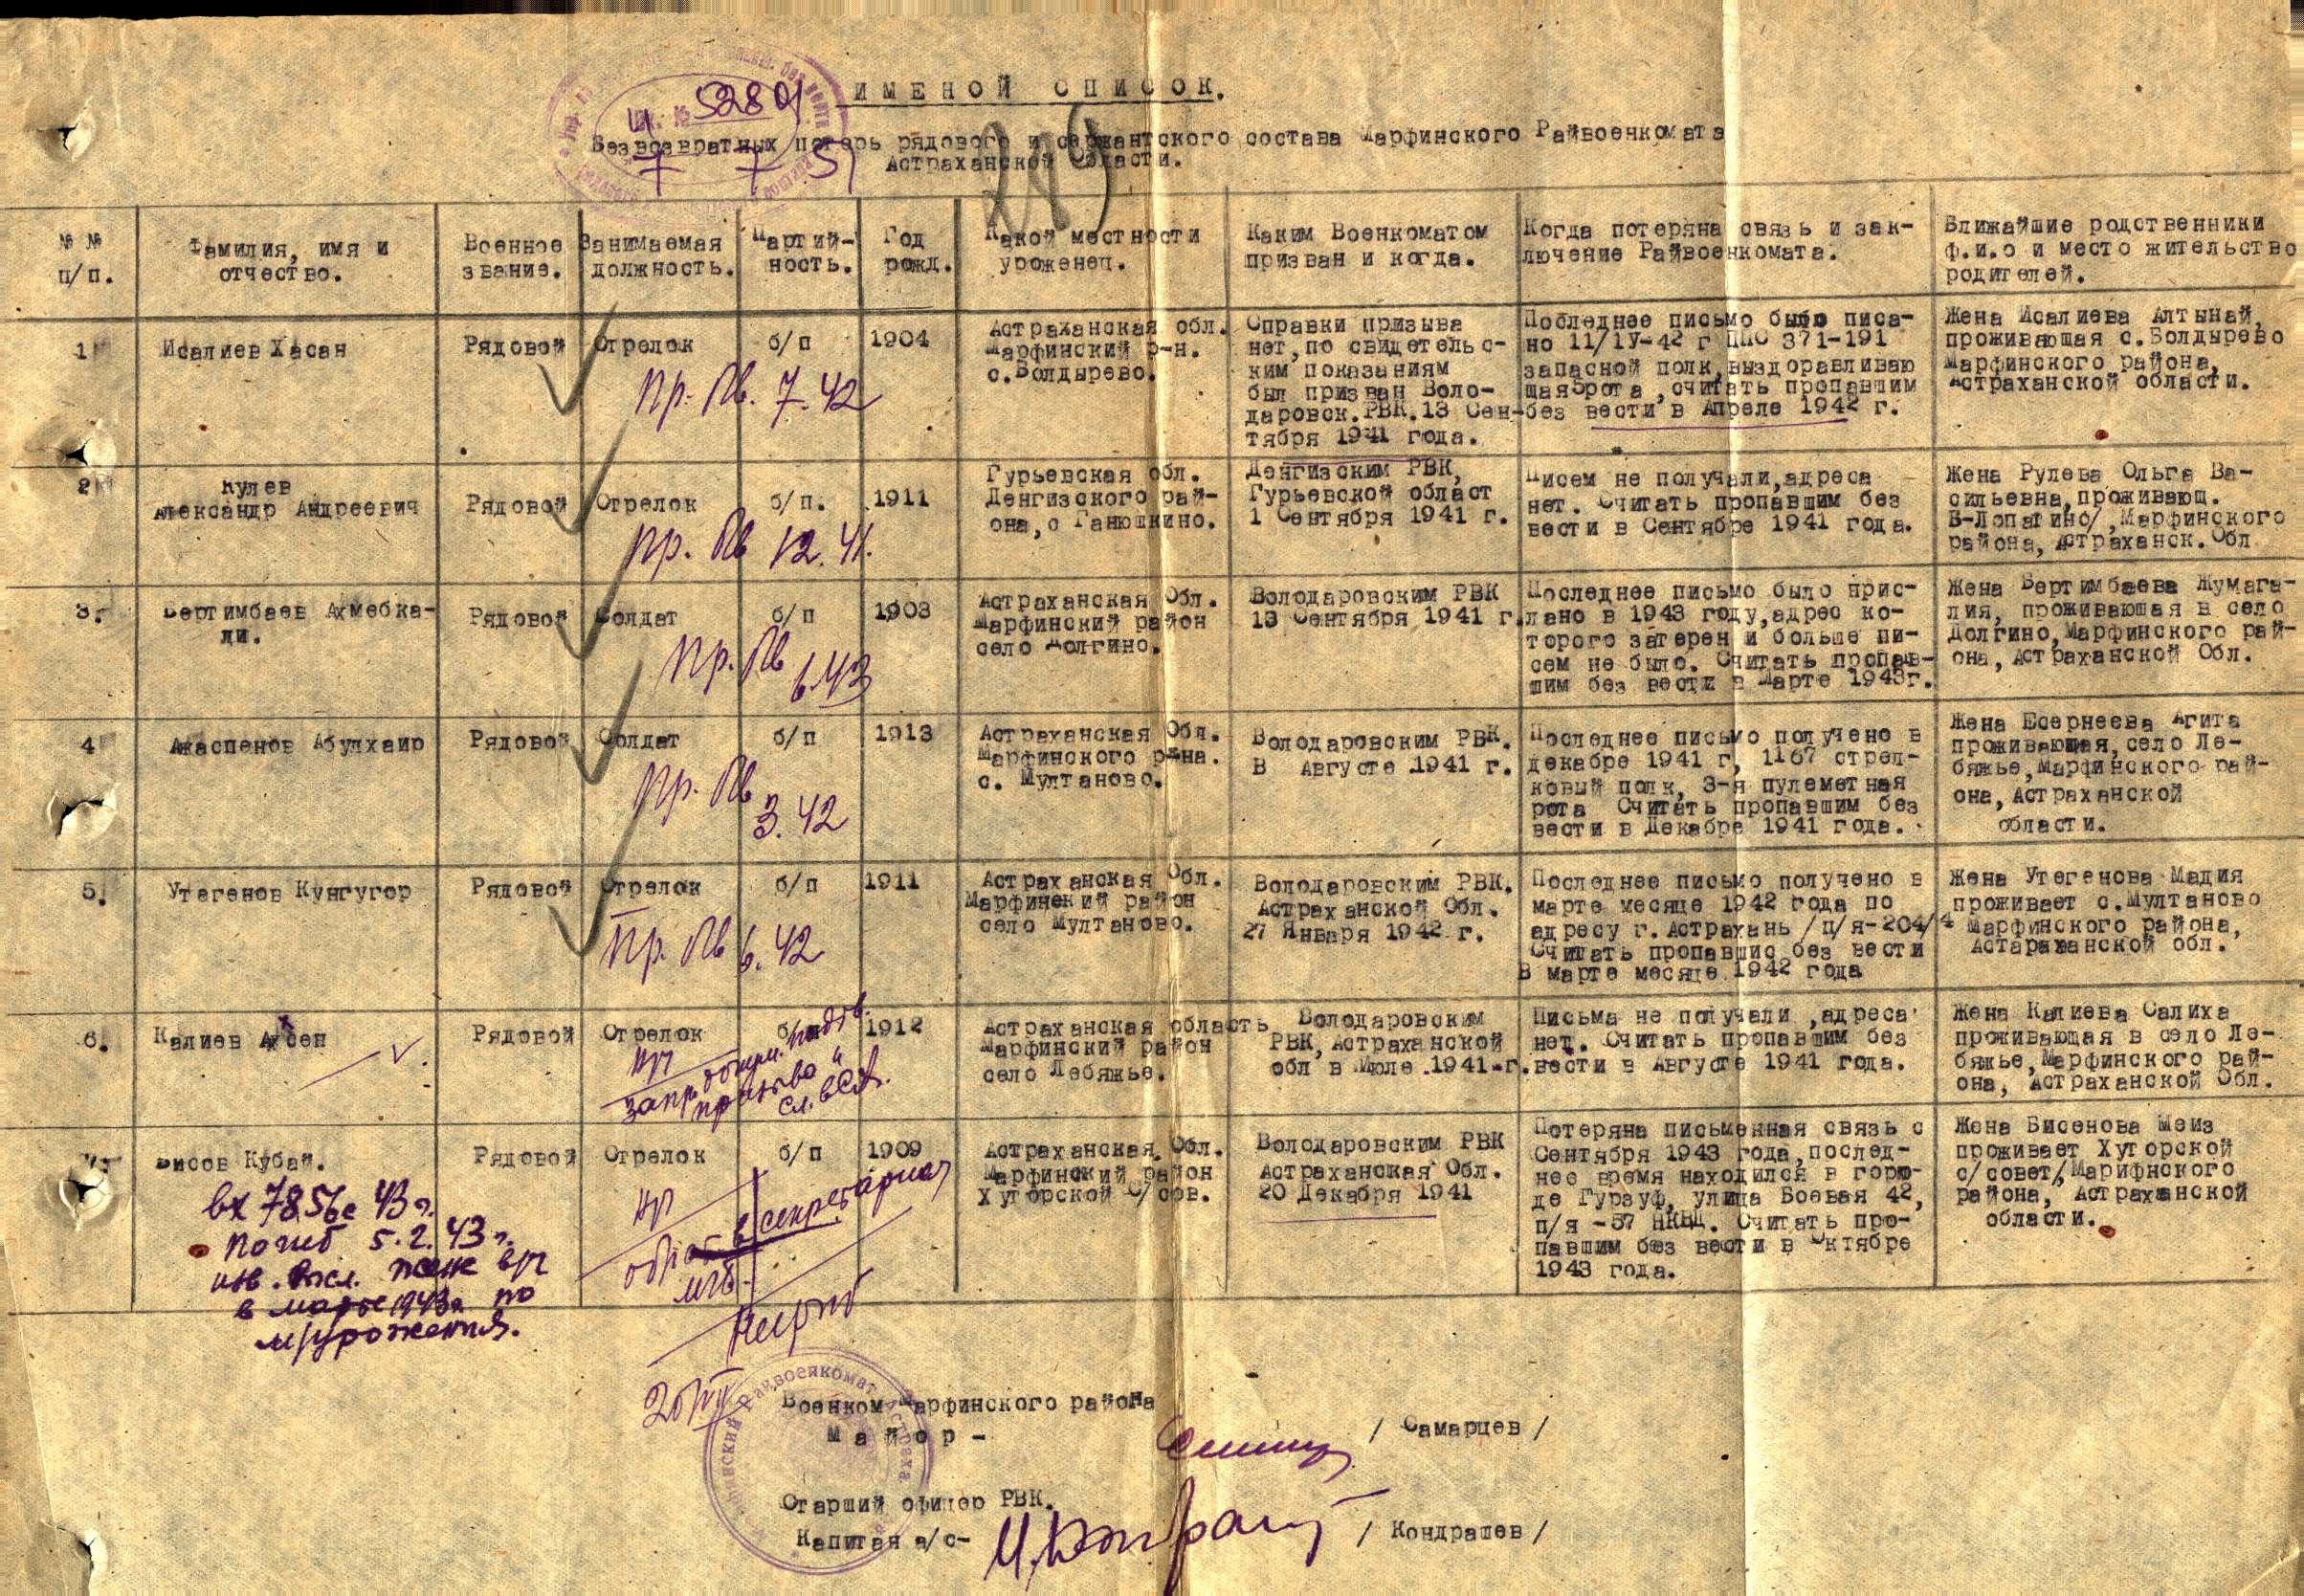 ИМЕНОЙ СПИСОК.
52801
Безвозвратных потерь рядового и сержантского состава Марфинского Райвоенкомата
Астраханской области.
7 7 51
№ №
п/п.
Фамилия, имя и
отчество.
Военное
звание.
Занимаемая
должность.
Партий-
ность.
Год
рожд.
Какой местности
уроженец.
Каким Военкоматом
призван и когда.
Когда потеряна связь и зак-
лючение Райвоенкомата.
Ближайшие родственники
ф.и.о и место жительство
родителей.
1
Исалиев Хасан
Рядовой
Стрелок
б/п
1904
Пр. Пв. 7.42
Астраханская обл.
Марфинский р-н.
с.Болдырево.
Справки призыва
нет,по свидетельс-
ким показаниям
был призван Воло-
даровск.РВК.13 Сен-
тября 1941 года.
Последнее письмо было писа-
но 11/1У-42 г ППС 371-191
запасной полк,выздоравливаю
щая5рота,считать пропавшим
без вести в Апреле 1942 г.
Жена Исалиева Алтынай,
проживающая с.Болдырево
Марфинского района,
Астраханской области.
2
Рулев
Александр Андреевич
Рядовой
Стрелок
б/п.
1911
Пр. Пв 12.41.
Гурьевская обл.
Денгизского рай-
она,с Ганюшкино.
Денгизским РВК,
Гурьевской област
1 Сентября 1941 г.
Писем не получали,адреса
нет. Считать пропавшим без
вести в Сентябре 1941 года.
Жена Рулева Ольга Ва-
сильевна,проживающ.
Б-Лопатино/,Марфинского
района, Астраханск.Обл
3.
Бертимбаев Ахмебка-
ли.
Рядовой
Солдат
б/п
1903
Пр. Пв 6.43
Астраханская Обл.
Марфинский район
село Долгино.
Володаровским РВК
13 Сентября 1941 г.
Последнее письмо было прис-
лано в 1943 году,адрес ко-
торого затерен и больше пи-
сем не было. Считать пропав-
шим без вести в Марте 1943г.
Жена Бертимбаева Жумага-
лия, проживающая в село
Долгино,Марфинского рай-
она, Астраханской Обл.
4
Ажаспенов Абулхаир
Рядовой
Солдат
б/п
1913
Пр. Пв 3.42
Астраханская Обл.
Марфинского р-на.
с. Мултаново.
Володаровским РВК.
В Августе 1941 г.
Последнее письмо получено в
декабре 1941 г, 1167 стрел-
ковый полк, 3-я пулеметная
рота Считать пропавшим без
вести в Декабре 1941 года.
Жена Есернеева Агита
проживающая,село Ле-
бяжье,Марфинского рай-
она, Астраханской
области.
5.
Утегенов Кунгугор
Рядовой
Стрелок
б/п
1911
Пр. Пв 6.42
Астраханская Обл.
Марфинский район
село Мултаново.
Володаровским РВК.
Астраханской Обл.
27 Января 1942 г.
Последнее письмо получено в
марте месяце 1942 года по
адресу г. Астрахань /п/я-204/4
Считать пропавшис без вести
В марте месяце 1942 года
Жена Утегенова Мадия
проживает с.Мултаново
Марфинского района,
Астараханской обл.
6.
Калиев Ахсен
Рядовой
Стрелок
1912
призыва и
сл. в СА.
Астраханская область
Марфинский район
село Лебяжье.
Володаровским
РВК, Астраханской
обл в Июле 1941-г.
Письма не получали ,адреса
нет. Считать пропавшим без
вести в Августе 1941 года.
Жена Калиева Салиха
проживающая в село Ле-
бяжье,Марфинского рай-
она, Астраханской Обл.
7.
Бисов Кубай.
Рядовой
Стрелок
б/п
1909
вх 7856с 43 г.
погиб 5.2.43 г.
изв. высл. жене
в марте 1943 г. по
м/урожения.
Астраханская Обл.
Марфинский район
Хуторской С/сов.
Володаровским РВК
Астраханская Обл.
20 Декабря 1941
Потеряна письменная связь с
Сентября 1943 года,послед-
нее время находился в горо-
де Гурзуф, улица Боевая 42,
п/я -57 НКВД. Считать про-
павшим без вести в Октябре
1943 года.
Жена Бисенова Меиз
проживает Хуторской
с/совет/,Марифнского
района, Астраханской
области.
Военком Марфинского района
Майор -
/ Самарцев /
Старший офицер РВК.
Капитан а/с-
/ Кондрашев /